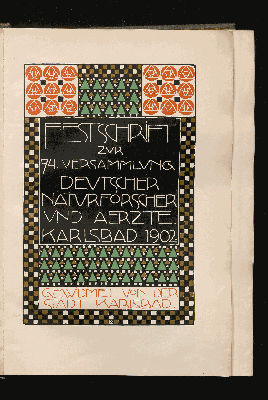 FESTSCHRIFT
ZUR
74. VERSAMMLUNG
DEUTSCHER
NATURFORSCHER
UND AERZTE
KARLSBAD 1902
GEWIDMET VON DER
STADT KARLSBAD